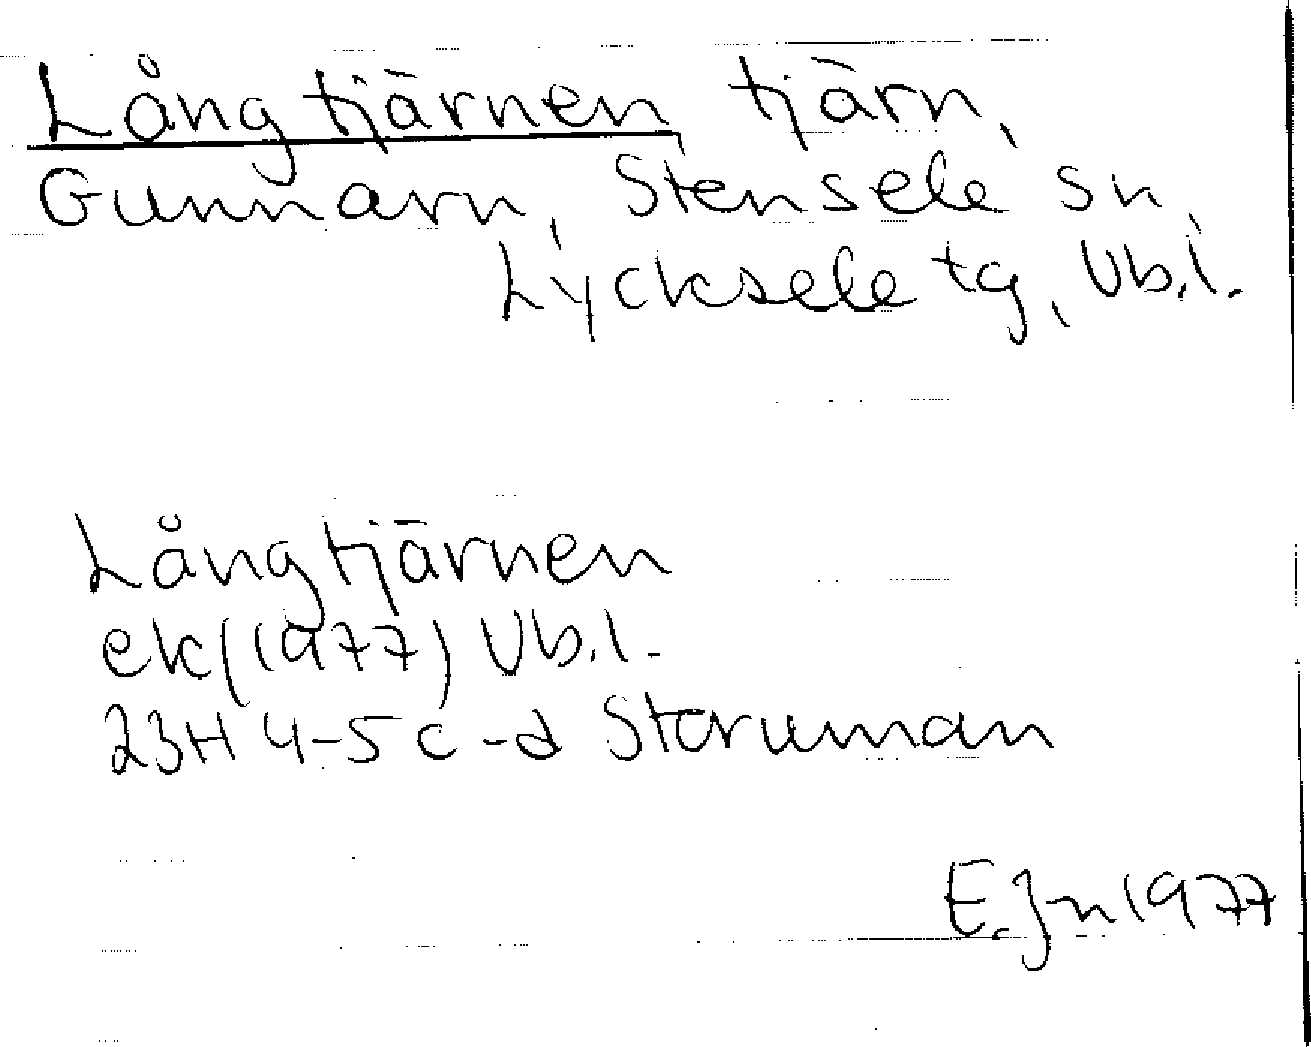 Långtjärnen tjärn,
Gunnarn, Stensele sn,
Lycksele tg, Vb.l.
Långtjärnen
ek(1977) Vb.l.
23H 4-5 c-d Storuman
E.Jn 1977